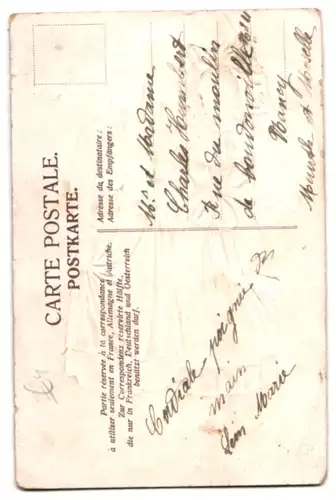 CARTE POSTALE.
POSTKARTE.
Partie réservée à la correspondance
à utiliser seulement en France, Allemagne et Autriche.
Zur Correspondenz reservirte Hälfte,
die nur in Frankreich, Deutschland und Oesterreich
benützt werden darf.
Adresse du destinataire:
Adresse des Empfängers:
Mr et Madame
Charles Humbert
Rue du moulin
de Boudonville
Nancy
Meurthe et Moselle
Cordiale poignée
main